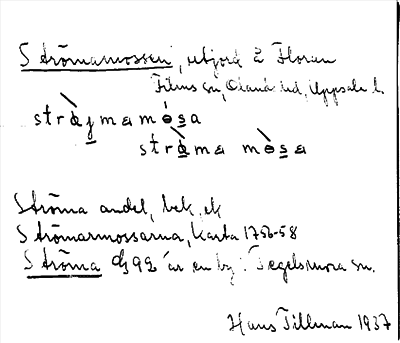 Strömarmossen, utjord t Floran
Films sn, Olands hd, Uppsala l.
strö̀jmamósa
strö̀ma mò̀sa
Ströma andel, bek, ek
Strömarmossarna, Karta 1756-58
Ströma är en by i Tegelsmora sn.
Hans Tillman 1937